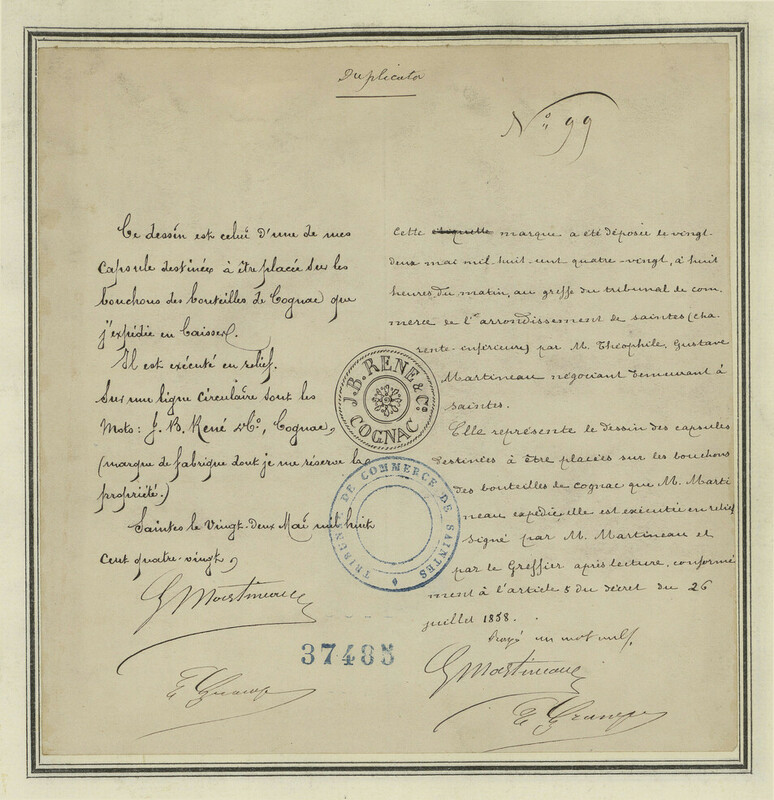 Duplicata
N° 99
Ce dessin est celui d'une de mes
Capsule destinées à être placée sur les
bouchons des bouteilles de Cognac que
j'expédie en Caisses.
Il est exécuté en relief.
Sur une ligne Circulaire sont les
Mots: J. B. René & Co, Cognac,
(marque de fabrique dont je me réserve la
propriété.)
Saintes le Vingt-deux Mai mil huit
Cent quatre-vingt,
G Martineau
Cette étiquette marque a été déposée le vingt-
deux mai mil-huit-cent quatre-vingt, à huit
heures du matin, au greffe du tribunal de com-
merce de l'arrondissement de saintes (cha-
rente-inférieure) par M. Théophile, Gustave
Martineau négociant demeurant à
saintes.
Elle représente le dessin des capsules
destinées à être placées sur les bouchons
des bouteilles de cognac que M. Marti
neau expédie elle est exécutée en relief
signé par M. Martineau et
par le Greffier après lecture, conformé
ment à l'article 5 du décret du 26
juillet 1858.
Rayé un mot nul.
G Martineau
J. B. RENE & Co.
COGNAC
TRIBUNAL DE COMMERCE DE SAINTES
37485